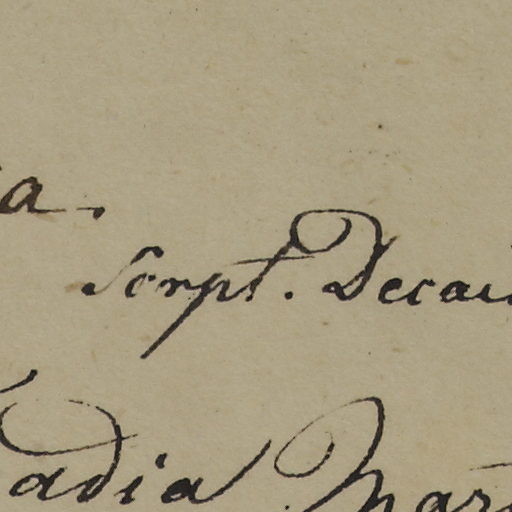 a.
Scrpt. Decai
adia Mar